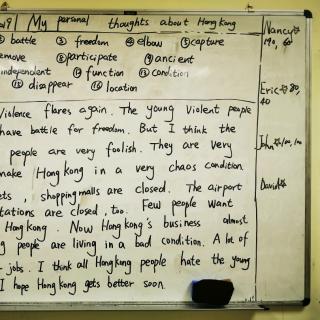 My personal thoughts about Hong kong
battle ③ freedom ④ elbow ⑤ capture
⑧ participate ⑨ ancient
independent ⑫ function ⑬ condition
⑮ disappear ⑯ location
Violence flares again. The young violent people
have battle for freedom. But I think the
people are very foolish. They are very
make Hong kong in a very chaos condition
, shopping malls are closed. The airport
are closed, too. Few people want
Hong kong. Now Hong kong's business almost
people are living in a bad condition. A lot of
jobs. I think all Hong kong people hate the young
I hope Hong kong gets better soon.
Nancy☆
190, 60
Eric☆ 80,
40
John☆100, 100
David☆